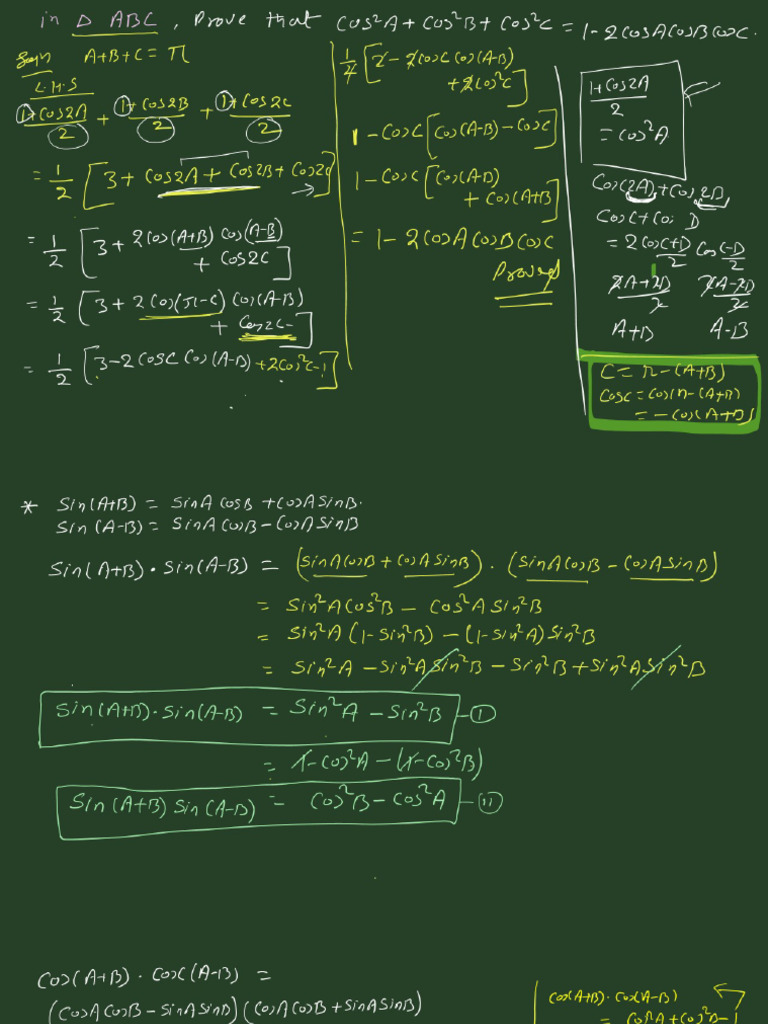 in Δ ABC, Prove that cos²A + cos²B + cos²C = 1 - 2cosA cosB cosC.
A+B+C = π
L.H.S
(1+cos2A)/2 + (1+cos2B)/2 + (1+cos2C)/2
= 1/2 [3 + cos2A + cos2B + cos2C]
= 1/2 [3 + 2cos(A+B) cos(A-B) + cos2C]
= 1/2 [3 + 2cos(π-C) cos(A-B) + cos2C]
= 1/2 [3 - 2cosC cos(A-B) + 2cos²C - 1]
1/2 [2 - 2cosC cos(A-B) + 2cos²C]
1 - cosC [cos(A-B) - cosC]
1 - cosC [cos(A-B) + cos(A+B)]
= 1 - 2cosA cosB cosC
Proved
(1+cos2A)/2
= cos²A
cos(2A) + cos2B
cosC + cos D
= 2cos(C+D)/2 cos(C-D)/2
(2A+2B)/2 (2A-2B)/2
A+B A-B
C = π - (A+B)
cosC = cos(π-(A+B))
= -cos(A+B)
* Sin(A+B) = SinA cosB + cosA SinB.
Sin(A-B) = SinA cosB - cosA SinB
Sin(A+B) · Sin(A-B) = (SinA cosB + cosA SinB) · (SinA cosB - cosA SinB)
= Sin²A cos²B - cos²A Sin²B
= Sin²A (1-Sin²B) - (1-Sin²A) Sin²B
= Sin²A - Sin²A Sin²B - Sin²B + Sin²A Sin²B
Sin(A+B) · Sin(A-B) = Sin²A - Sin²B - (i)
= 1 - cos²A - (1 - cos²B)
Sin(A+B) Sin(A-B) = cos²B - cos²A - (ii)
cos(A+B) · cos(A-B) =
(cosA cosB - sinA sinB) (cosA cosB + sinA sinB)
cos(A+B) · cos(A-B)
= cos²A + cos²B - 1